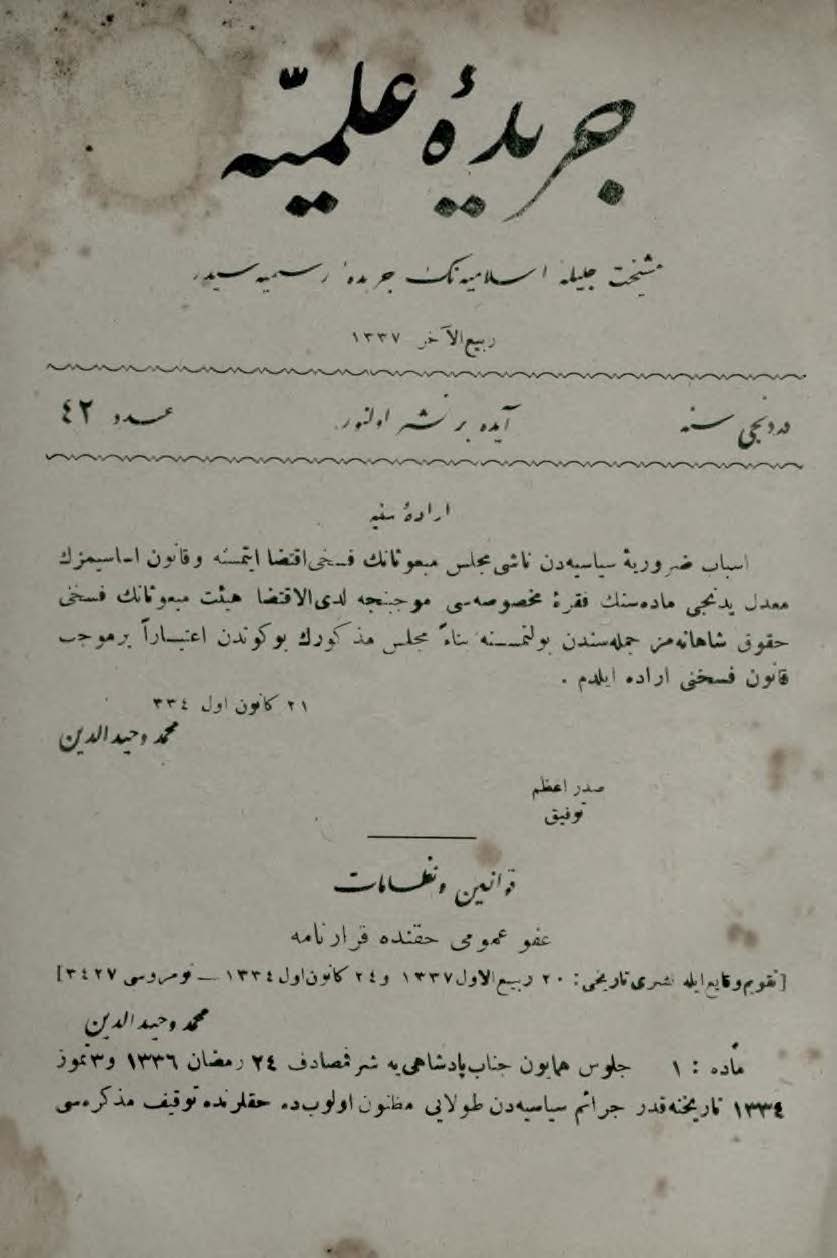 جريدۀ علميّه
مشيخت جليلۀ اسلاميه‌نك جريدۀ رسميه‌سيدر
ربيع‌الآخر ١٣٣٧
دردنجى سنه
آيده بر نشر اولنور.
عدد ٤٢
ارادۀ سنيه
اسباب ضروريۀ سياسيه‌دن ناشى مجلس مبعوثانك فسخى اقتضا ايتمسنه وقانون اساسيمزك
معدل يدنجى ماده‌سنك فقرۀ مخصوصه‌سى موجبنجه لدى‌الاقتضا هيئت مبعوثانك فسخى
حقوق شاهانه‌مز جمله‌سندن بولنمسنه بناءً مجلس مذكورك بوكوندن اعتباراً برموجب
قانون فسخنى اراده ايلدم .
٢١ كانون اول ٣٣٤
محمد وحيدالدين
صدر اعظم
توفيق
قوانين ونظامات
عفو عمومى حقنده قرارنامه
[تقويم وقايع ايله نشرى تاريخى: ٢٠ ربيع‌الاول ١٣٣٧ و٢٤ كانون اول ١٣٣٤ ــ نومروسى ٣٤٢٧]
محمد وحيدالدين
مادّه : ١ جلوس همايون جناب پادشاهى‌يه شرفمصادف ٢٤ رمضان ١٣٣٦ و٣ تموز
١٣٣٤ تاريخنه‌قدر جرائم سياسيه‌دن طولايى مظنون اولوب‌ده حقلرنده توقيف مذكره‌سى